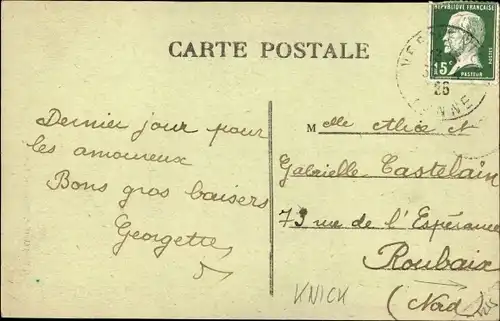 CARTE POSTALE
RÉPUBLIQUE FRANÇAISE
15c
POSTES
PASTEUR
26
Dernier jour pour
les amoureux
Bons gros baisers
Georgette
Melle Alice et
Gabrielle Castelain
73 rue de l'Espérance
Roubaix
(Nord)
KNICK